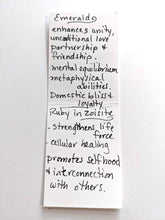 Emerald
enhances unity,
unconditional love
partnership &
friendship.
mental equilibrium
metaphysical
abilities.
Domestic bliss &
loyalty
Ruby in Zoisite
- strengthens life
force
- cellular healing
promotes selfhood
& interconnection
with others.